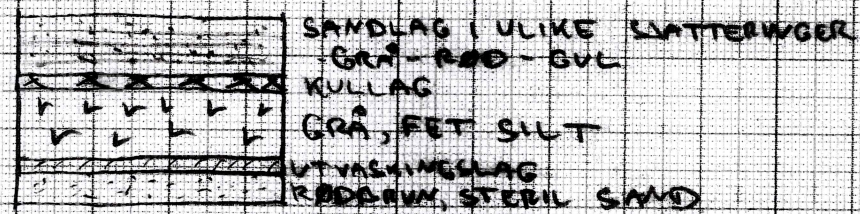 SANDLAG I ULIKE SJATTERINGER
- GRÅ - RØD - GUL
KULLAG
GRÅ, FET SILT
UTVASKINGSLAG
RØDBRUN, STERIL SAND